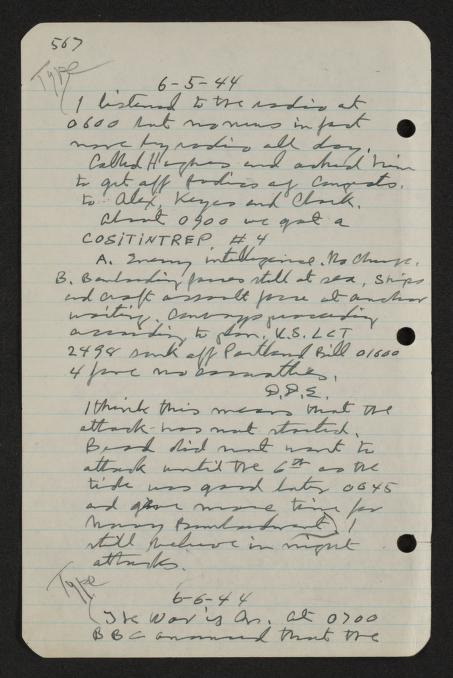 567
Type
6-5-44
I listened to the radio at
0600 but no news in fact
none by radio all day.
Called Hughes and asked him
to get off bodies of Congrats.
to Alex, Keyes and Clark.
About 0900 we got a
COSITINTREP #4
A. Enemy intelligence. No change.
B. Bombarding forces still at sea, Ships
and craft assault force at anchor
waiting. Convoys proceeding
according to plan. U.S. LCT
2498 sunk off Portland Bill 01600
4 fore no casualties.
D.D.E.
I think this means that the
attack was not started.
Brad did not want to
attack until the 6th as the
tide was good later 0645
and gave more time for
Navy Bombardment. I
still believe in night
attacks.
Type
6-6-44
The War is On. At 0700
BBC announced that the